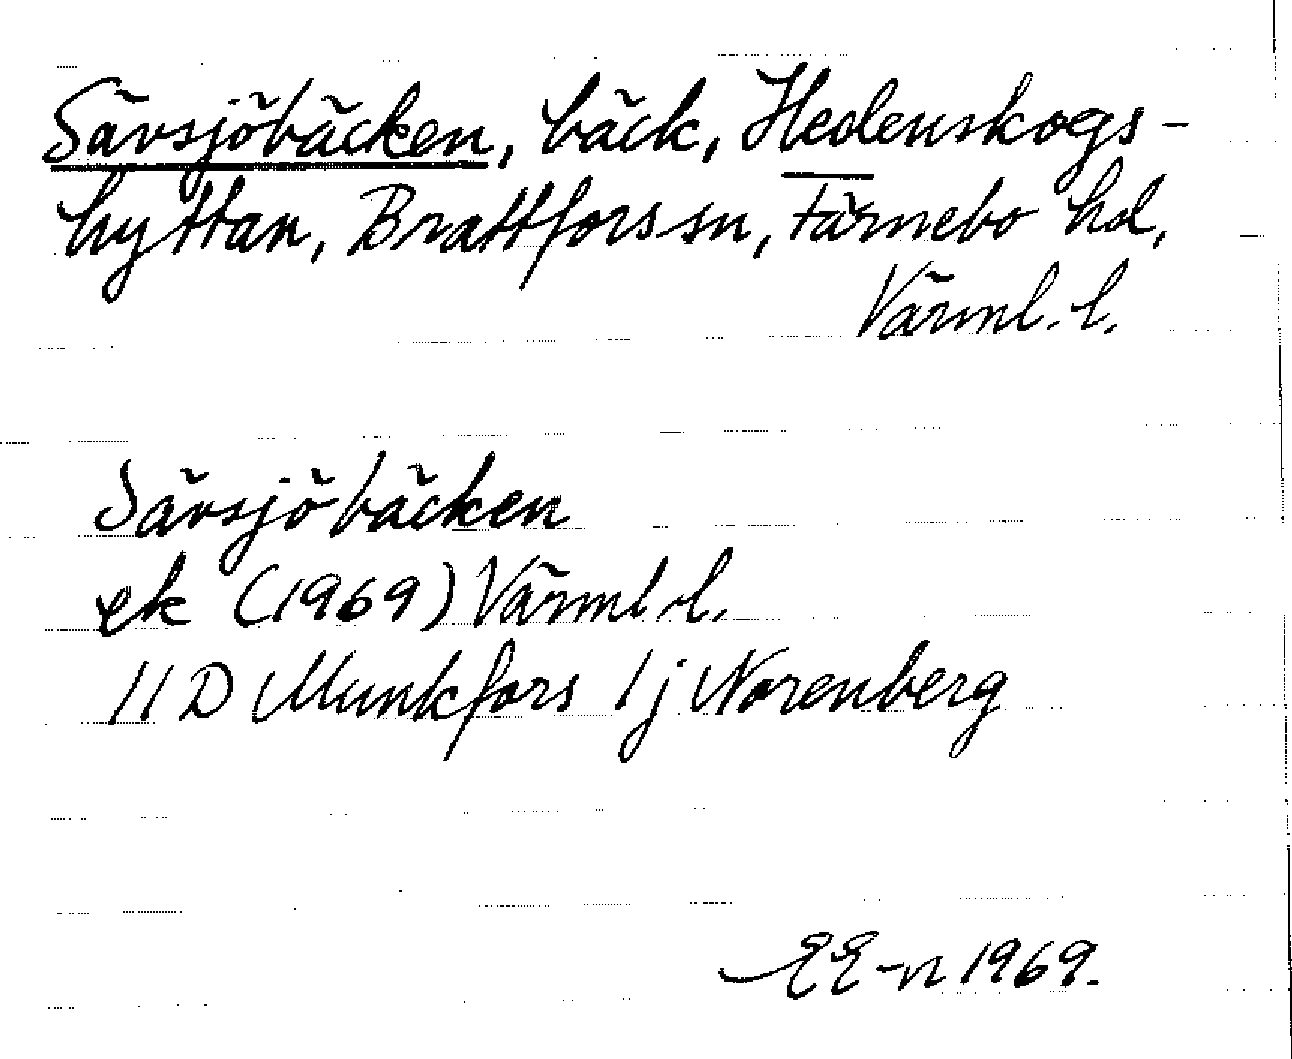 Sävsjöbäcken, bäck, Hedenskogs-
hyttan, Brattfors sn, Färnebo hd,
Värml. l.
Sävsjöbäcken
ek (1969) Värml. l.
11 D Munkfors 1 j Norenberg
EE-n 1969.